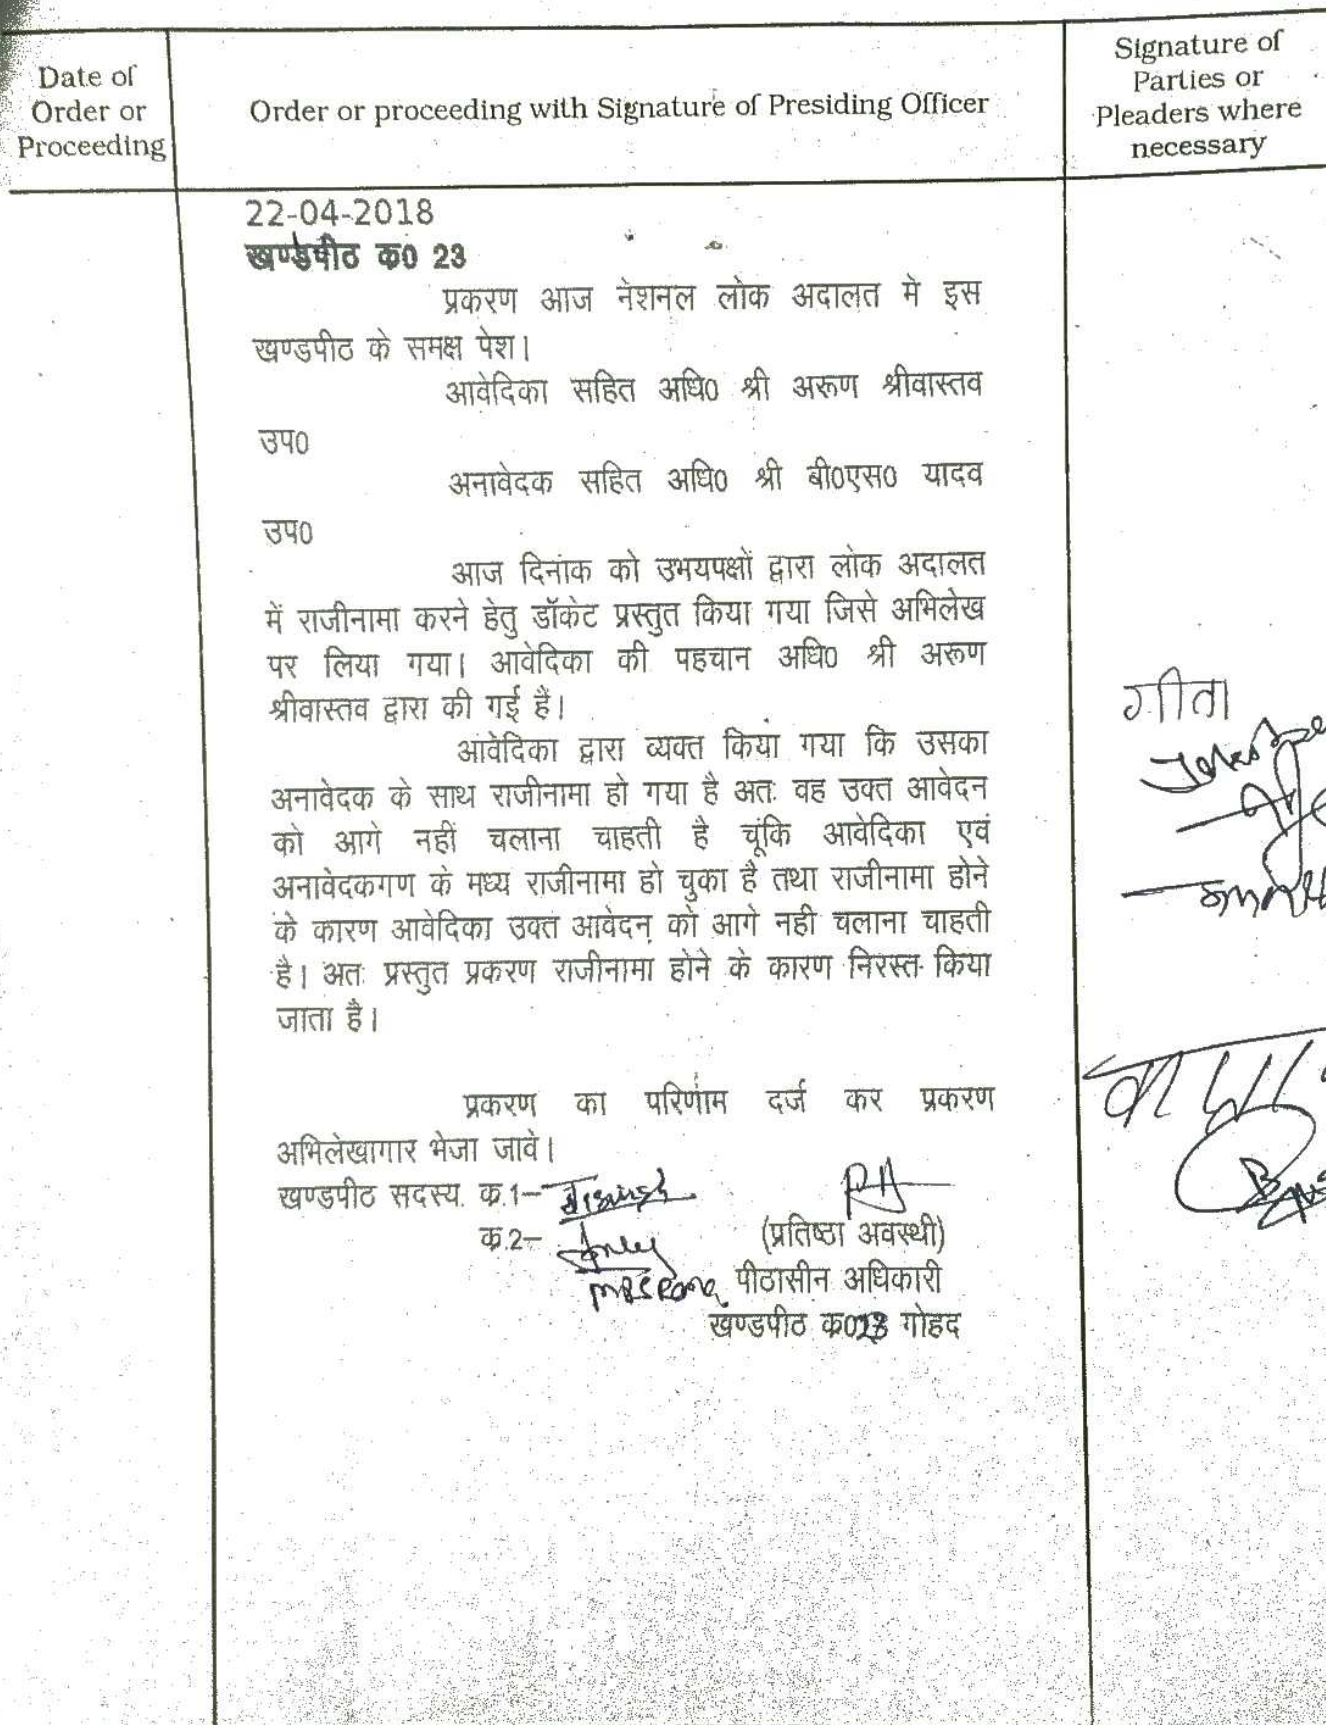 Date of
Order or
Proceeding
Order or proceeding with Signature of Presiding Officer
Signature of
Parties or
Pleaders where
necessary
22-04-2018
खण्डपीठ क0 23
प्रकरण आज नेशनल लोक अदालत मे इस
खण्डपीठ के समक्ष पेश।
आवेदिका सहित अधि0 श्री अरूण श्रीवास्तव
उप0
अनावेदक सहित अधि0 श्री बी0एस0 यादव
उप0
आज दिनांक को उभयपक्षों द्वारा लोक अदालत
में राजीनामा करने हेतु डॉकेट प्रस्तुत किया गया जिसे अभिलेख
पर लिया गया। आवेदिका की पहचान अधि0 श्री अरूण
श्रीवास्तव द्वारा की गई है।
आवेदिका द्वारा व्यक्त किया गया कि उसका
अनावेदक के साथ राजीनामा हो गया है अतः वह उक्त आवेदन
को आगे नहीं चलाना चाहती है चूंकि आवेदिका एवं
अनावेदकगण के मध्य राजीनामा हो चुका है तथा राजीनामा होने
के कारण आवेदिका उक्त आवेदन को आगे नही चलाना चाहती
है। अतः प्रस्तुत प्रकरण राजीनामा होने के कारण निरस्त किया
जाता है।
प्रकरण का परिणाम दर्ज कर प्रकरण
अभिलेखागार भेजा जावे।
खण्डपीठ सदस्य क.1–
क.2–
(प्रतिष्ठा अवस्थी)
पीठासीन अधिकारी
खण्डपीठ क023 गोहद
गीता